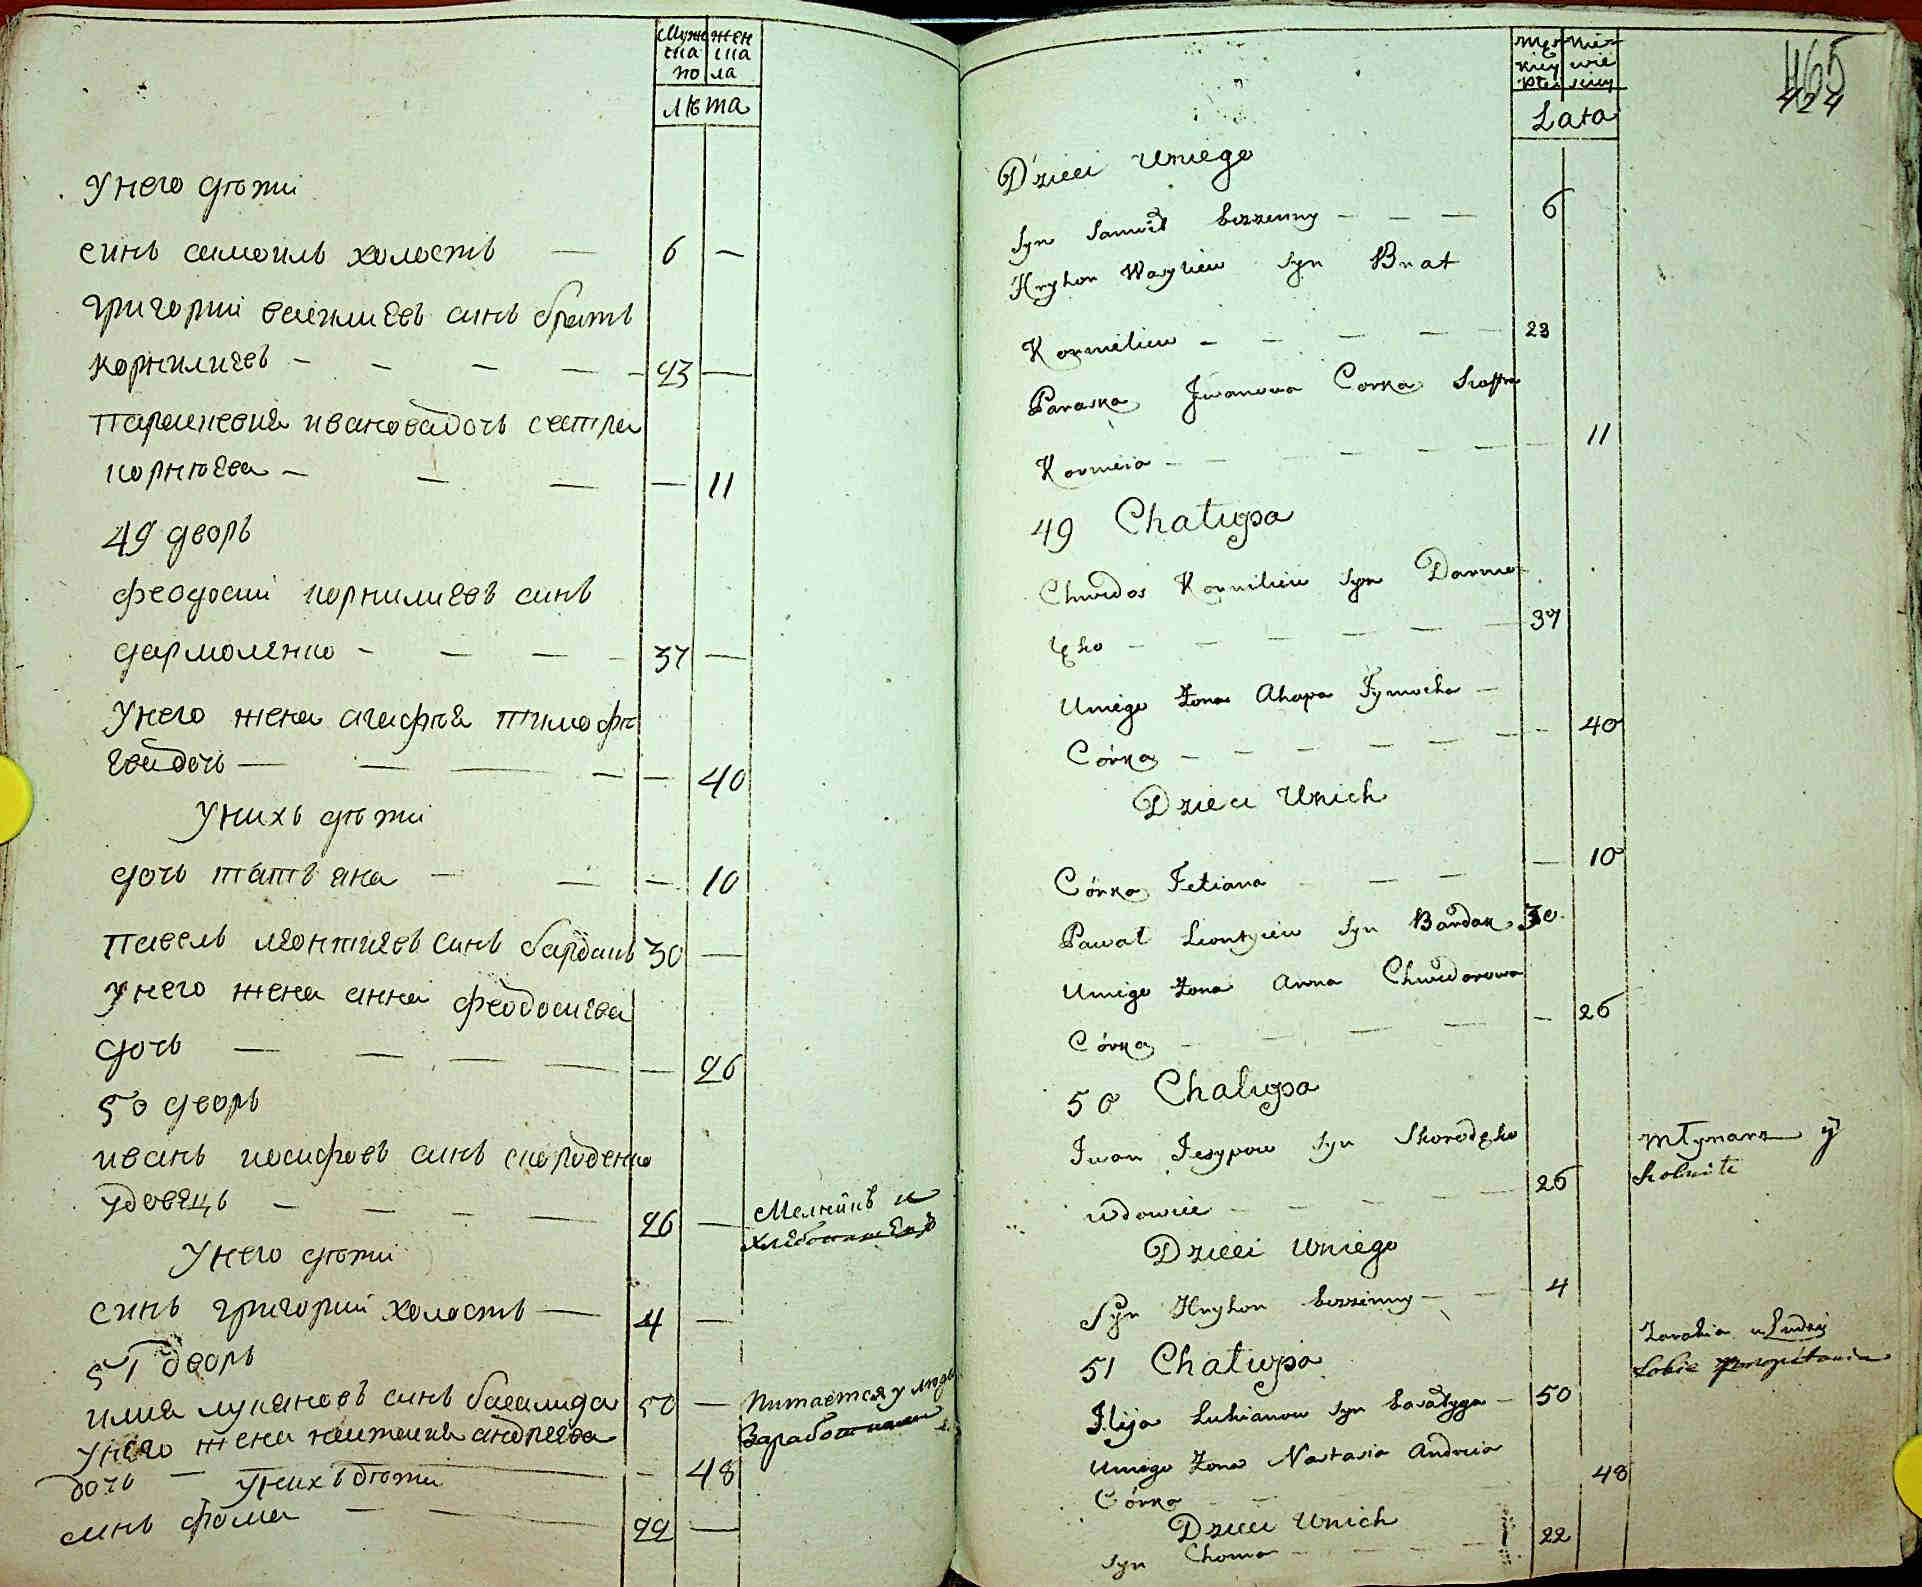 Муже жен
ска ска
по ла
лѣта
У него дѣти
синъ самоилъ холостъ — 6 —
Григорий василиевъ синъ братъ
корнилиевъ — — — — — 23 —
Параскевия ивановадочь сестра
корнюева — — — — 11
49 дворъ
феодосий корнилиевъ синъ
дармоленко — — — — 37 —
У него жена агафия тимофѣ
евадочь — — — — — 40
У нихъ дѣти
дочь татъяна — — — 10
Павелъ леонтиевъ синъ барданъ 30 —
У него жена анна феодосиева
дочь — — — — — 26
50 дворъ
иванъ иосифовъ синъ скороденко
удовецъ — — — — 26 — Мелникъ и
У него дѣти
синъ григорий холостъ — 4 —
51 дворъ
илия лукяновъ синъ басалига 50 — питается у люде
У него жена настасия андреева заработками
дочь — У нихъ дѣти — 48
синъ фома — — 22 —
465
424
Męz Nie
kiey wie
płci sciey
Lata
Dzieci Uniego
Syn Samuel bezzenny — — — 6
Hryhor Wasyliew Syn Brat
Korneliew — — — — 23
Paraska Jwanowa Corka Siostra
Korneia — — — — — — 11
49 Chałupa
Chwedos Korniliew Syn Darmo
lęko — — — — — — 37
Uniego Zona Ahapa Tymocha —
Córka — — — — — — — 40
Dzieci Unich
Córka Tetiana — — — 10
Pawał Leontyiew Syn Bardak 30
Uniego Zona Anna Chwedorowa
Córka — — — — 26
50 Chałupa
Iwan Jesypow Syn Skorodęko Młynarz y
wdowiec — — — — 26 Rolnik
Dzieci Uniego
Syn Hryhor bezzenny — — 4
51 Chałupa Zarabia u Ludzi
Ilija Lukianow Syn Basałyga — 50 Sobie
Uniego Zona Nastasia Andreia
Córka — — 48
Dzieci Unich
Syn Choma — — — — 22